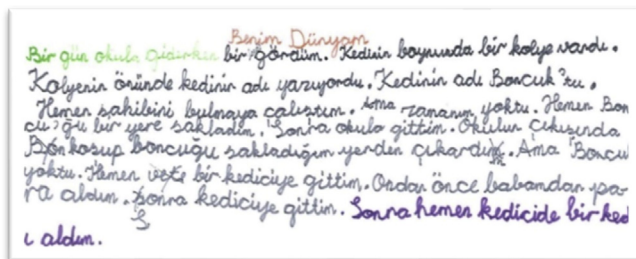 Benim Dünyam
Bir gün okula giderken bir gördüm. Kedinin boynunda bir kolye vardı.
Kolyenin önünde kedinin adı yazıyordu. Kedinin adı Boncuk'tu.
Hemen sahibini bulmaya çalıştım. Ama zamanım yoktu. Hemen Bon
cu'ğu bir yere sakladım. Sonra okula gittim. Okulun çıkışında
Ben koşup boncuğu sakladığım yerden çıkardım. Ama Boncu
yoktu. Hemen bir kediciye gittim. Ondan önce babamdan pa-
ra aldım. Sonra kediciye gittim. Sonra hemen kedicide bir ked
i aldım.